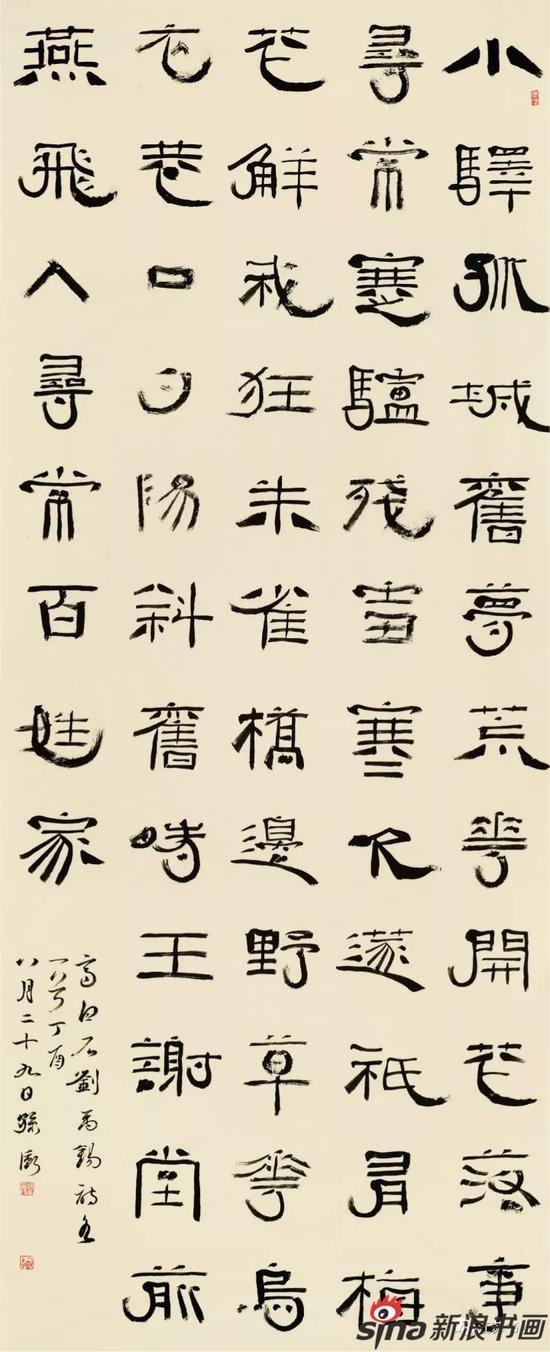 小驛孤城舊夢荒花開花落事
尋常蹇驢殘寒祇有梅
花解我狂朱雀橋邊野草花烏
衣巷口夕陽斜舊時王謝堂前
燕飛入尋常百姓家
高白石劉禹錫詩各
一首丁酉
八月二十九日孫
sina新浪书画